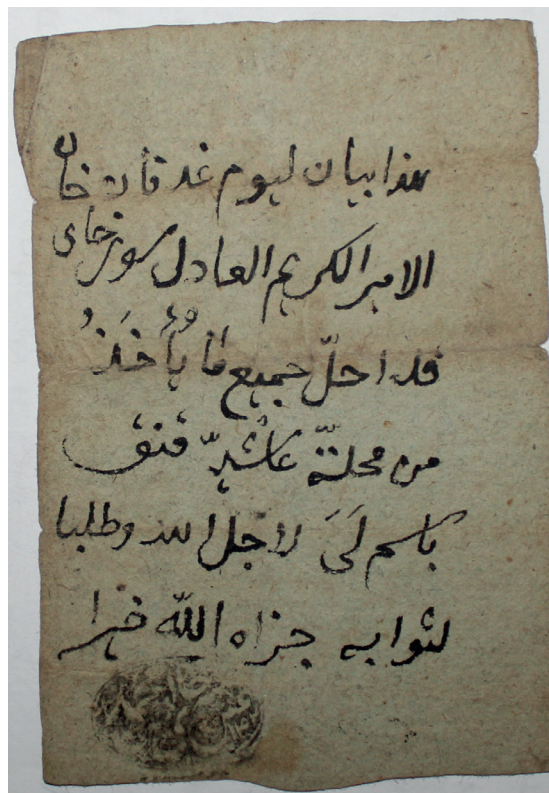 هذا بيان ليوم غد فان خان
الامير الكريم العادل سورخاى
قد احلّ جميع ما يُأخَذُ
من محلة
باسم لَىَ لاجل الله وطلبا
لثوابه جزاه الله خيرا